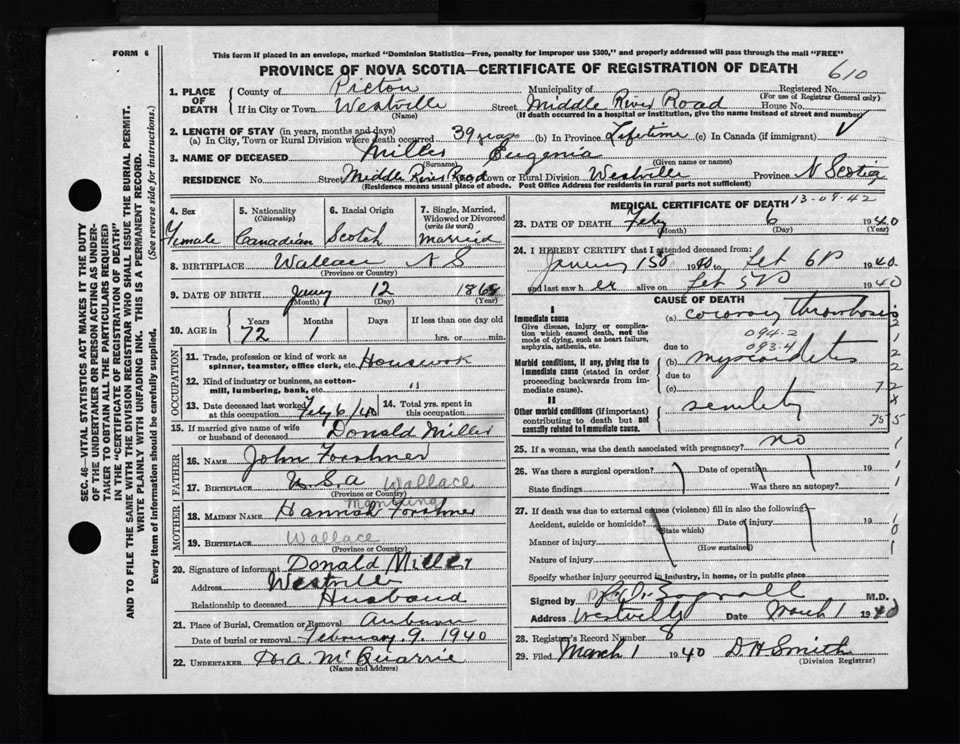 FORM 6
This form if placed in an envelope, marked "Dominion Statistics—Free, penalty for improper use $300," and properly addressed will pass through the mail "FREE"
PROVINCE OF NOVA SCOTIA—CERTIFICATE OF REGISTRATION OF DEATH
610
1. PLACE OF DEATH
County of Picton Municipality of Registered No.
(For use of Registrar General only)
If in City or Town Westville Street Middle River Road House No.
(Name) (If death occurred in a hospital or institution, give the name instead of street and number)
2. LENGTH OF STAY (in years, months and days)
(a) In City, Town or Rural Division where death occurred 39 years (b) In Province Lifetime (c) In Canada (if immigrant)
3. NAME OF DECEASED Miller Eugenia
(Surname) (Given name or names)
RESIDENCE No. Street Middle River Road Town or Rural Division Westville Province N Scotia
(Residence means usual place of abode. Post Office Address for residents in rural parts not sufficient)
4. Sex 5. Nationality (Citizenship) 6. Racial Origin 7. Single, Married, Widowed or Divorced (write the word)
Female Canadian Scotch Married
8. BIRTHPLACE Wallace N S
(Province or Country)
9. DATE OF BIRTH 12 1868
(Month) (Day) (Year)
10. AGE in Years Months Days If less than one day old
72 1 hrs. or min.
OCCUPATION
11. Trade, profession or kind of work as spinner, teamster, office clerk, etc. Housework
12. Kind of industry or business, as cotton-mill, lumbering, bank, etc. "
13. Date deceased last worked at this occupation Feby 6/40 14. Total yrs. spent in this occupation
15. If married give name of wife or husband of deceased Donald Miller
FATHER
16. NAME John Forshner
17. BIRTHPLACE Wallace
(Province or Country)
MOTHER
18. MAIDEN NAME Hannah Forshner
19. BIRTHPLACE Wallace
(Province or Country)
20. Signature of informant Donald Miller
Address Westville
Relationship to deceased Husband
21. Place of Burial, Cremation or Removal Auburn
Date of burial or removal February 9, 1940
22. UNDERTAKER D. A. McQuarrie
(Name and address)
MEDICAL CERTIFICATE OF DEATH 13-09-42
23. DATE OF DEATH Feby 6 1940
(Month) (Day) (Year)
24. I HEREBY CERTIFY that I attended deceased from:
1940 to Feb 1940
and last saw her alive on Feb 1940
CAUSE OF DEATH
I
Immediate cause
Give disease, injury or complication which caused death, not the mode of dying, such as heart failure, asphyxia, asthenia, etc.
(a) coronary thrombosis
094-2
due to 093-4
Morbid conditions, if any, giving rise to immediate cause (stated in order proceeding backwards from immediate cause).
(b) myocarditis
due to
(c)
II
Other morbid conditions (if important) contributing to death but not causally related to immediate cause.
senility
25. If a woman, was the death associated with pregnancy? no
26. Was there a surgical operation? Date of operation 19
State findings Was there an autopsy?
27. If death was due to external causes (violence) fill in also the following:—
Accident, suicide or homicide? Date of injury 19
(State which)
Manner of injury
(How sustained)
Nature of injury
Specify whether injury occurred in industry, in home, or in public place
Signed by M.D.
Address Westville Date March 1 1940
28. Registrar's Record Number 8
29. Filed March 1 1940 D H Smith
(Division Registrar)
SEC. 46—VITAL STATISTICS ACT MAKES IT THE DUTY
OF THE UNDERTAKER OR PERSON ACTING AS UNDERTAKER
TO OBTAIN ALL THE PARTICULARS REQUIRED
IN THE "CERTIFICATE OF REGISTRATION OF DEATH"
AND TO FILE THE SAME WITH THE DIVISION REGISTRAR WHO SHALL ISSUE THE BURIAL PERMIT.
WRITE PLAINLY WITH UNFADING INK. THIS IS A PERMANENT RECORD.
Every item of information should be carefully supplied. (See reverse side for instructions.)